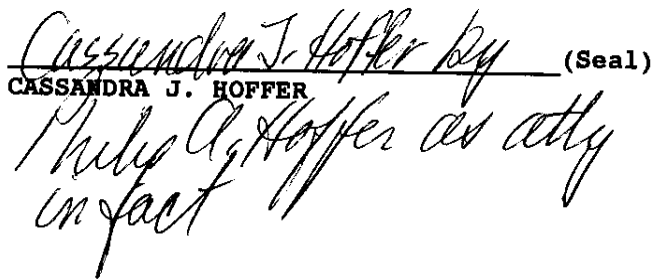 Cassandra J. Hoffer by (Seal)
CASSANDRA J. HOFFER
Philip A. Hoffer as atty
in fact